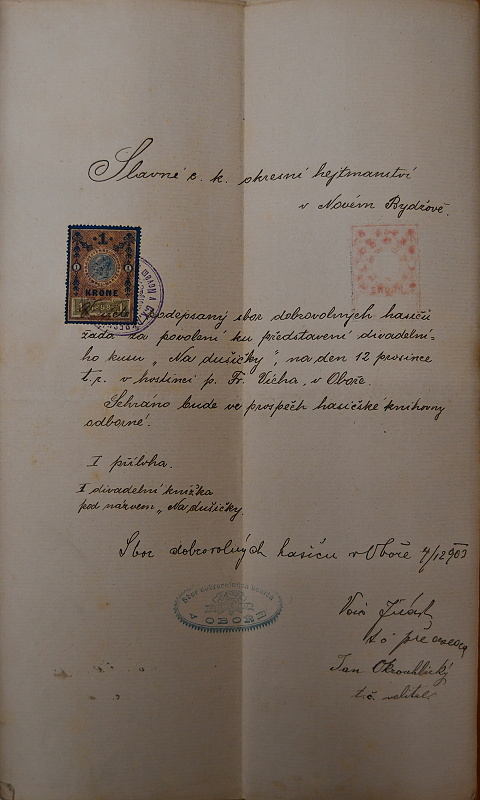 Slavné c. k. okresní hejtmanství
v Novém Bydžově.
1
KRONE
Podepsaný sbor dobrovolných hasičů
žádá za povolení ku představení divadelní-
ho kusu „Na dušičky", na den 12 prosince
t.r. v hostinci p. Fr. Vícha, v Oboře.
Sehráno bude ve prospěch hasičské knihovny
odborné.
I příloha.
I divadelní knížka
pod názvem „Na dušičky.
Sbor dobrovolných hasičů v Oboře 4/12 903
Sbor dobrovolných hasičů
v OBOŘE
t. č.
Jan Okrouhlický
t.č. velitel